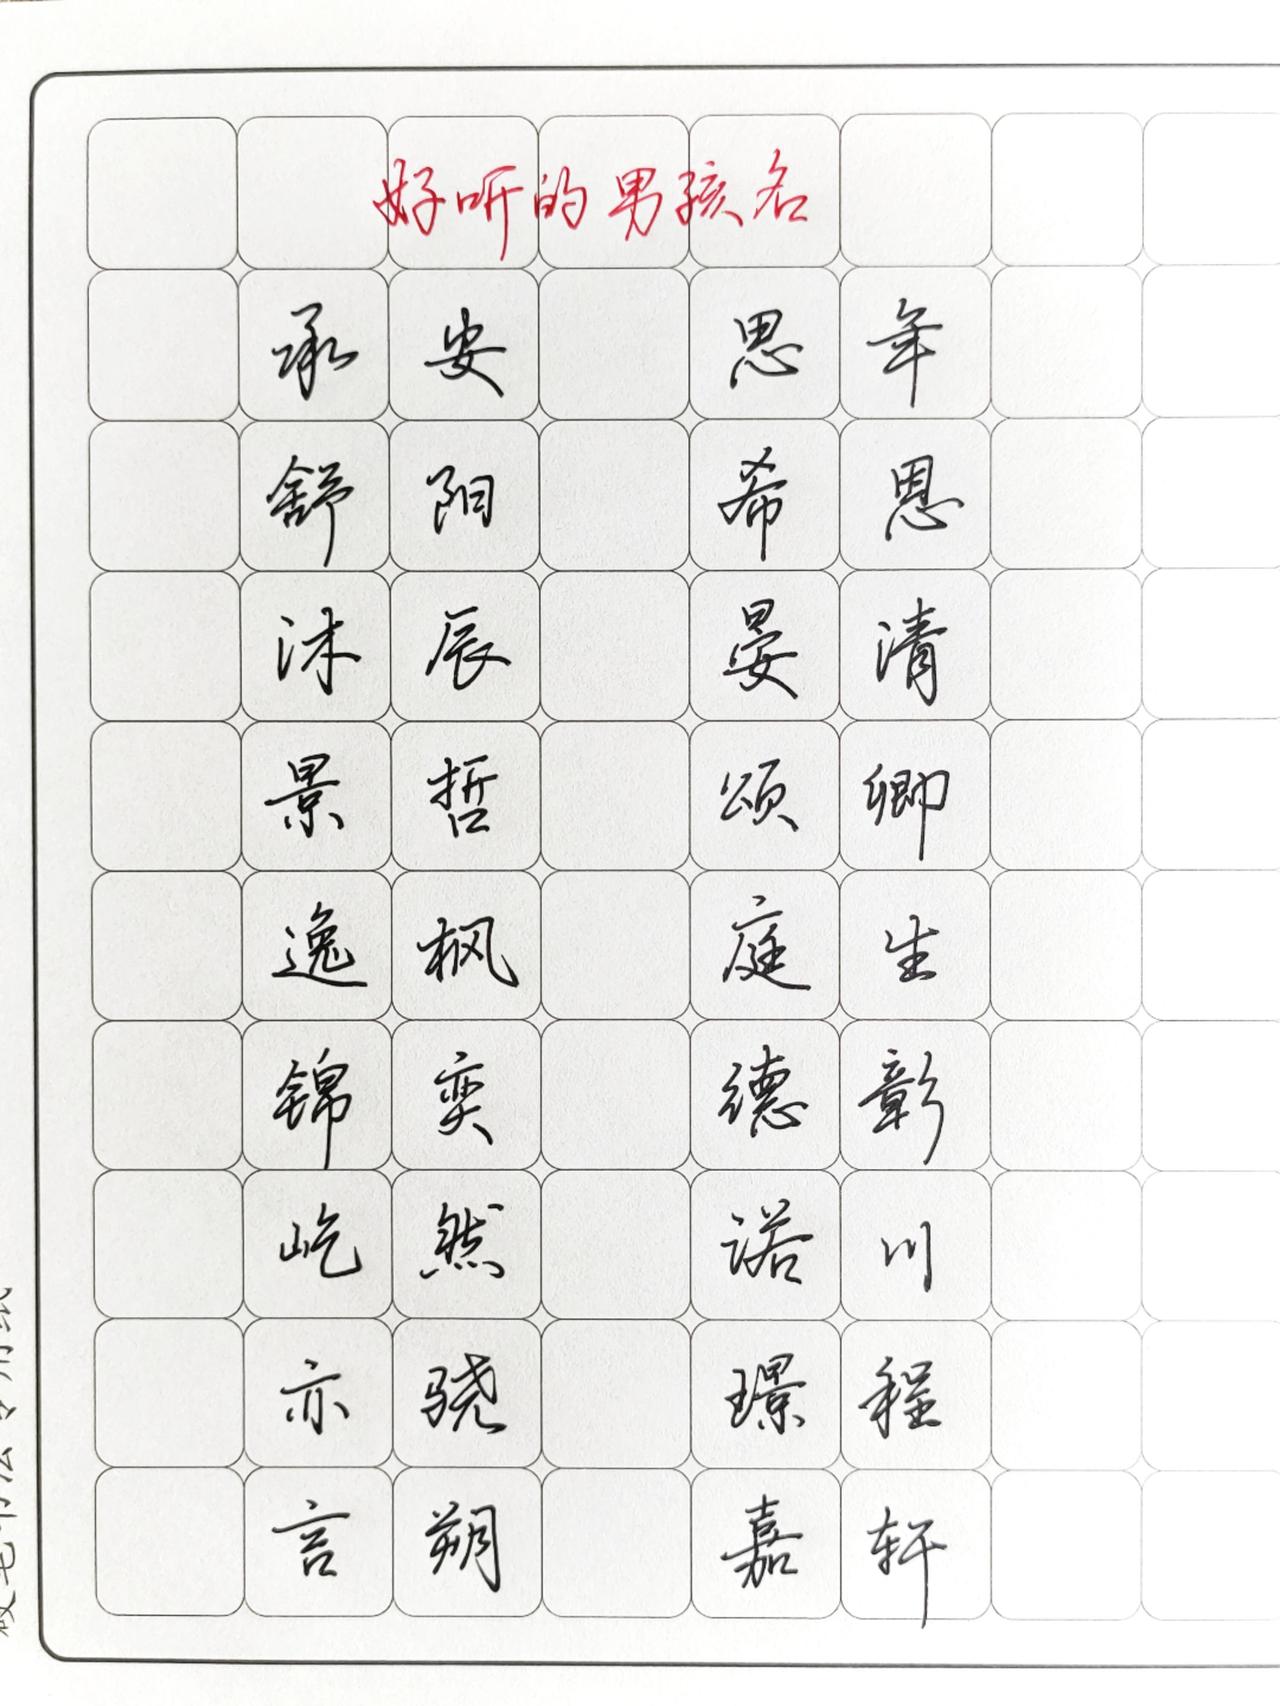 好听的男孩名
承安 思年
舒阳 希恩
沐辰 晏清
景哲 颂卿
逸枫 庭生
锦奕 德彰
屹然 诺川
亦骁 璟程
言朔 嘉轩